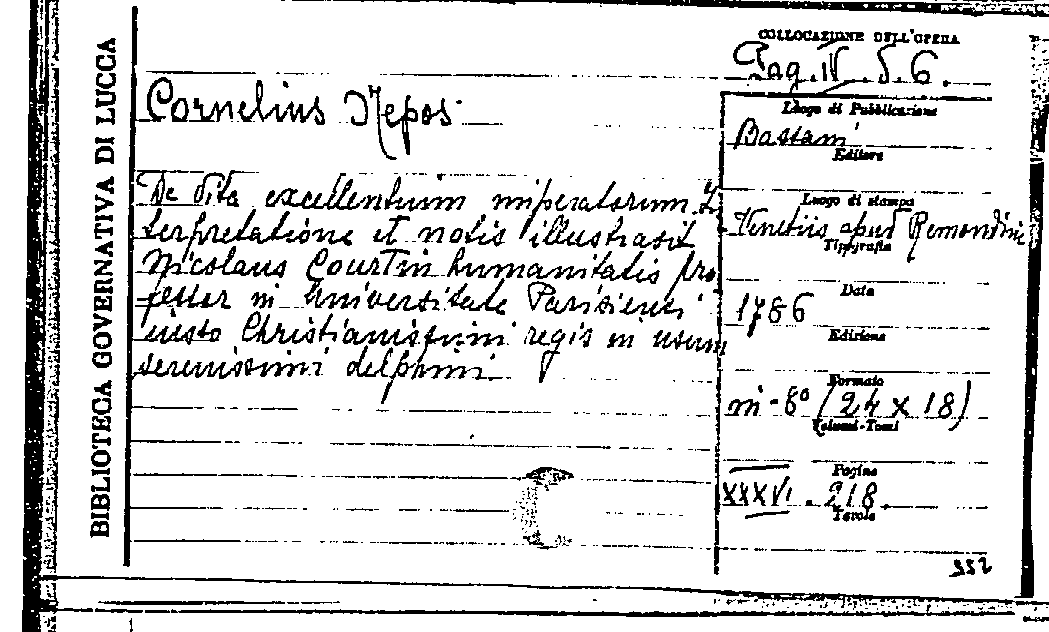 BIBLIOTECA GOVERNATIVA DI LUCCA
COLLOCAZIONE DELL'OPERA
Pag. IV. 5. 6.
Cornelius Nepos
De vita excellentium imperatorum In
terpretatione et notis illustravit
Nicolaus Courtin humanitatis pro
fessor in Universitate Parisiensi
iusto Christianissimi regis in usum
serenissimi delphini
Luogo di Pubblicazione
Bassani
Editore
Luogo di stampa
Venetiis apud Remondini
Tipografia
Data
1786
Edizione
Formato
in-8° (24 x 18)
Volumi-Tomi
Pagine
XXXVI. 218.
Tavole
552